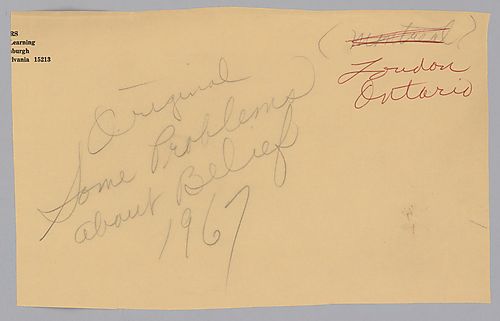 RS
Learning
sburgh
lvania 15213
(Montreal)
London
Ontario
Original
Some Problems
about Belief
1967